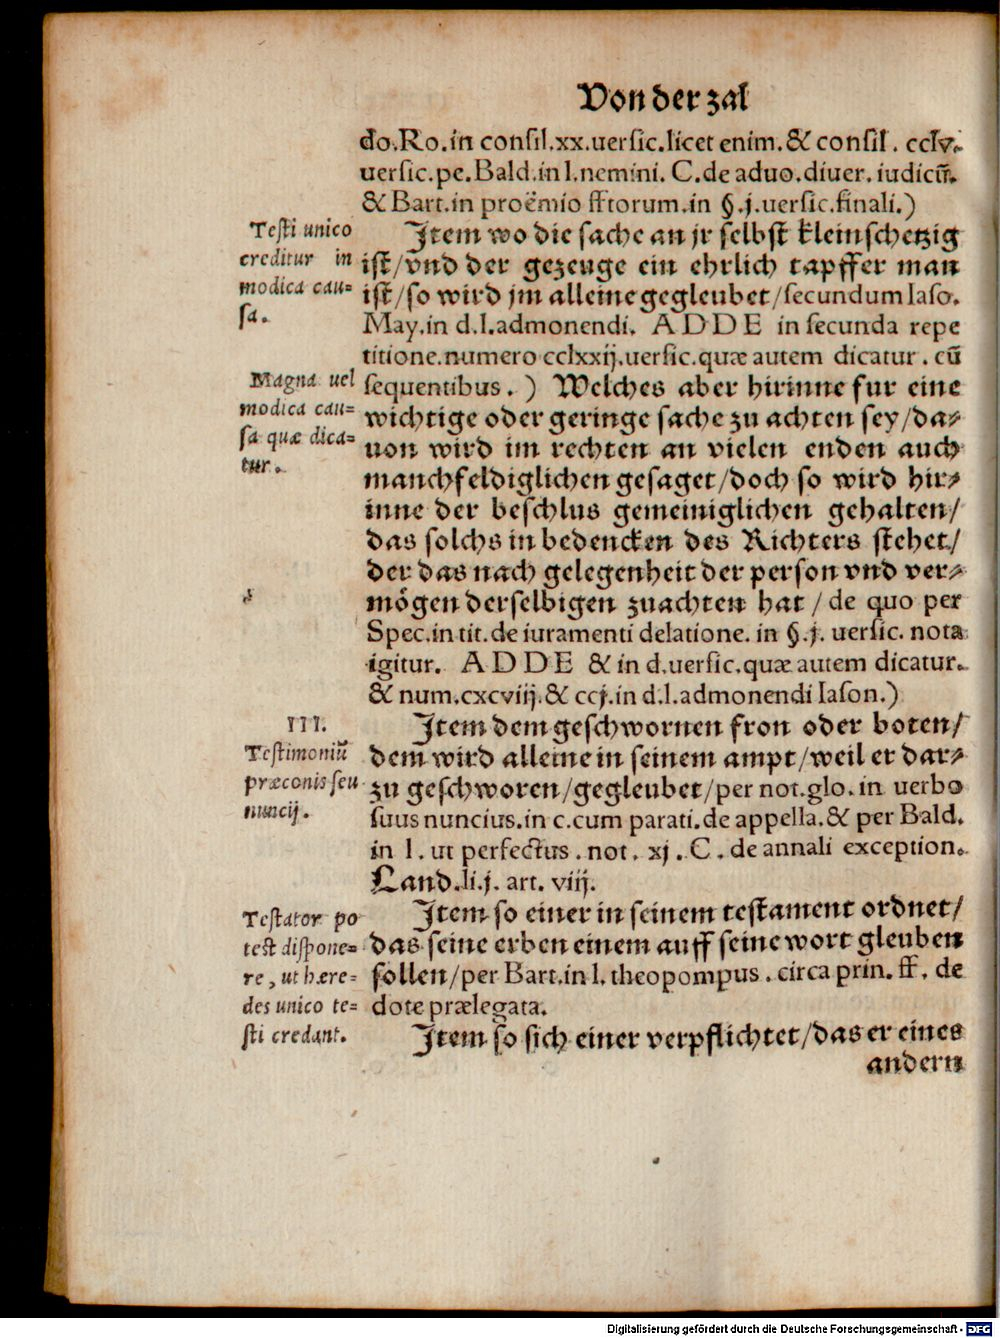 Von der zal
do.Ro.in consil.xx.uersic.licet enim.& consil. cclv.
uersic.pe.Bald.in l.nemini. C.de aduo.diuer. iudicũ.
& Bart.in proëmio fftorum.in §.j.uersic.finali.)
Testi unico
creditur in
modica cau-
sa.
Item wo die sache an jr selbst kleinschetzig
ist/vnd der gezeuge ein ehrlich tapffer man
ist/so wird jm alleine gegleubet/secundum Iaso.
May.in d.l.admonendi. ADDE in secunda repe
titione.numero cclxxij.uersic.quæ autem dicatur. cũ
Magna uel
modica cau-
sa quæ dica-
tur.
sequentibus. ) Welches aber hirinne fur eine
wichtige oder geringe sache zu achten sey/da-
uon wird im rechten an vielen enden auch
manchfeldiglichen gesaget/doch so wird hir-
inne der beschlus gemeiniglichen gehalten/
das solchs in bedencken des Richters stehet/
der das nach gelegenheit der person vnd ver-
mögen derselbigen zuachten hat / de quo per
Spec.in tit.de iuramenti delatione. in §.j. uersic. nota
igitur. ADDE & in d.uersic.quæ autem dicatur.
& num.cxcviij.& ccj.in d.l.admonendi Iason.)
III.
Testimoniũ
præconis seu
nuncij.
Item dem geschwornen fron oder boten/
dem wird alleine in seinem ampt/weil er dar-
zu geschworen/gegleubet/per not.glo.in uerbo
suus nuncius.in c.cum parati.de appella.& per Bald.
in l. ut perfectus. not. xj. C. de annali exception.
Land.li.j. art. viij.
Testator po
test dispone-
re, ut hære-
des unico te-
sti credant.
Item so einer in seinem testament ordnet/
das seine erben einem auff seine wort gleuben
sollen/per Bart.in l. theopompus. circa prin. ff. de
dote prælegata.
Item so sich einer verpflichtet/das er eines
andern
Digitalisierung gefördert durch die Deutsche Forschungsgemeinschaft - DFG